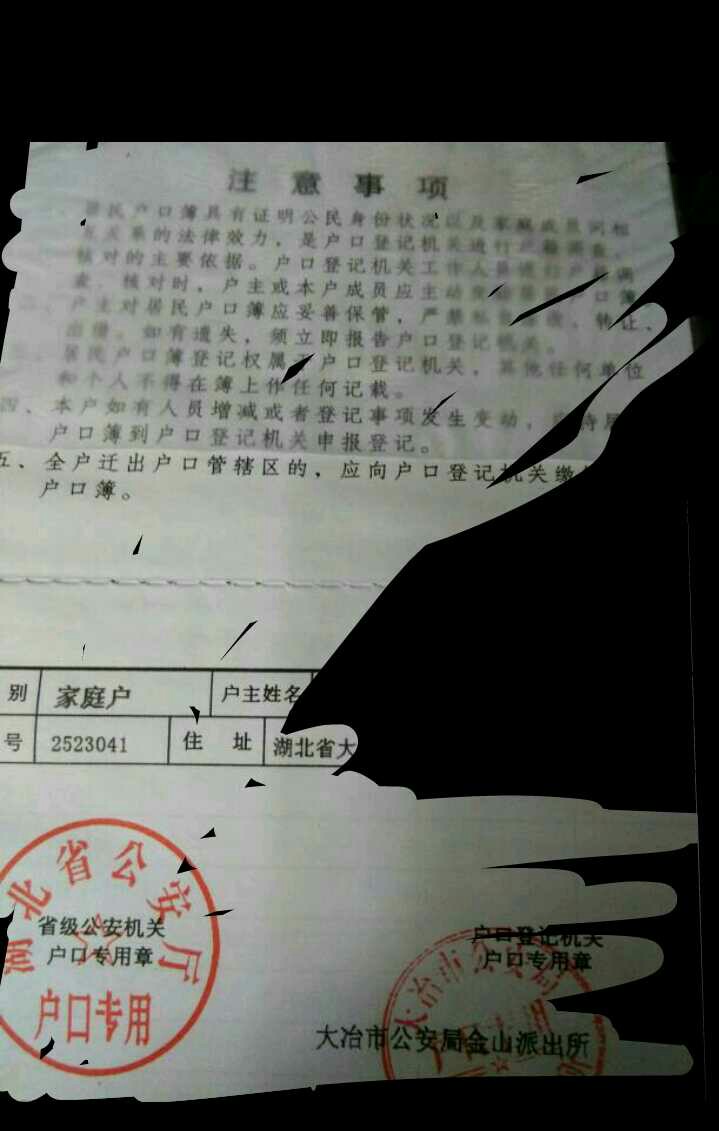 注意事项
居民户口簿具有证明公民身份状况以及家庭成员间相
互关系的法律效力，是户口登记机关进行户籍调查、
核对的主要依据。户口登记机关工作人员进行户籍调
查、核对时，户主或本户成员应主动户口簿
二、户主对居民户口簿应妥善保管，严禁转让、
出借。如有遗失，须立即报告户口登记机关。
三、居民户口簿登记权属于户口登记机关，其他任何单位
和个人不得在簿上作任何记载。
四、本户如有人员增减或者登记事项发生变动，应持居
户口簿到户口登记机关申报登记。
五、全户迁出户口管辖区的，应向户口登记机关缴
户口簿。
别 家庭户 户主姓名
号 2523041 住址 湖北省大
湖北省公安厅
省级公安机关
户口专用章
户口专用
户口登记机关
户口专用章
大冶市公安局
大冶市公安局金山派出所